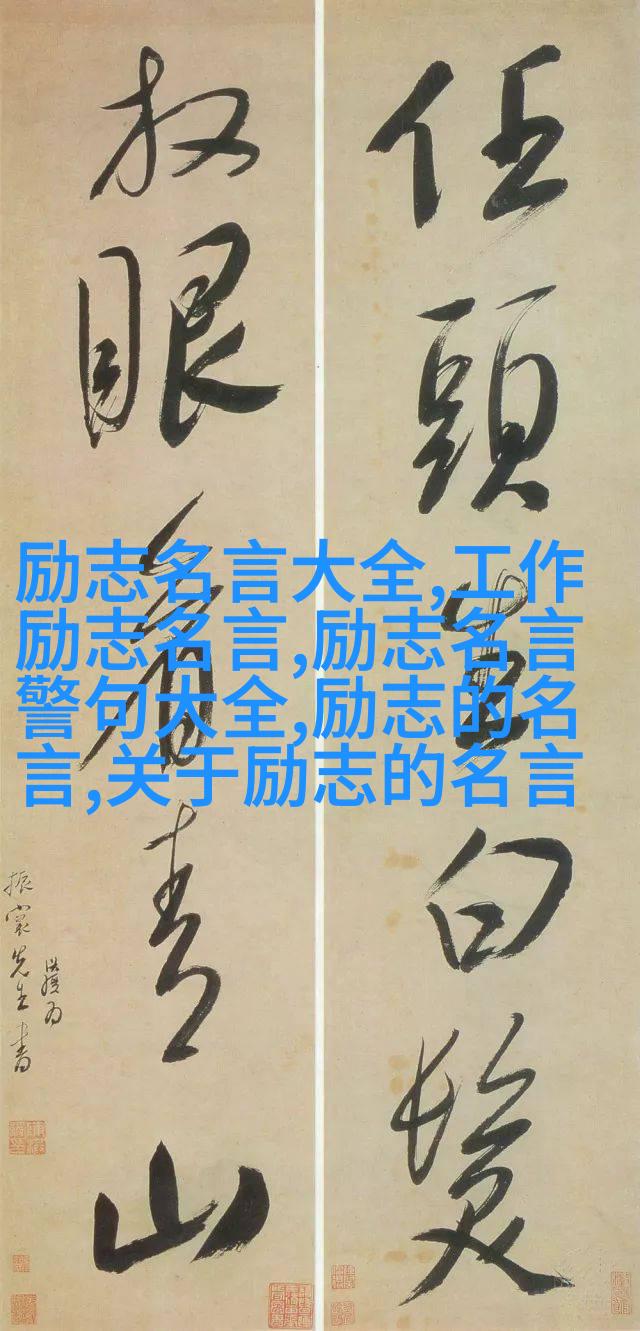 任頭生白髮
放眼看青山
洪綬為
振裳先生書
励志名言大全,工作
励志名言,励志名言
警句大全,励志的名
言,关于励志的名言